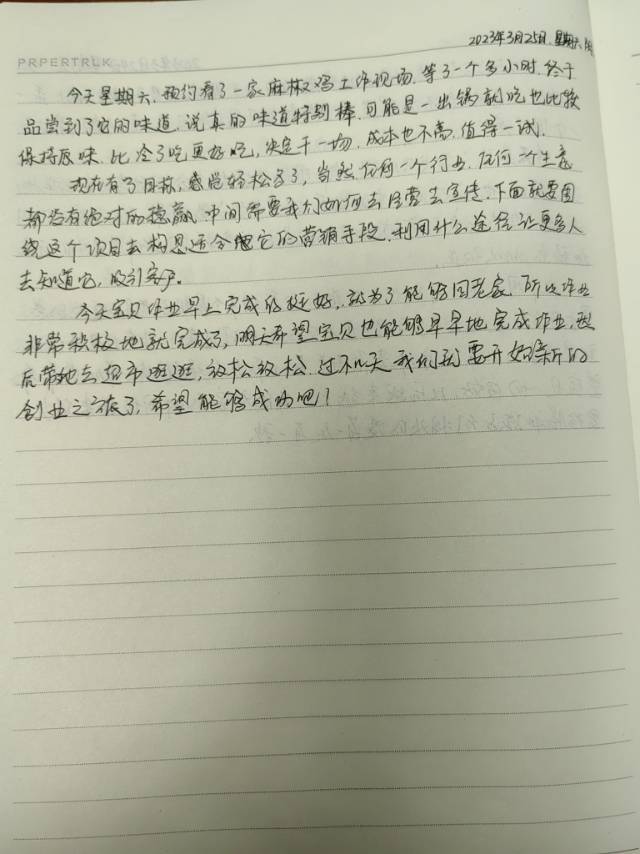 2023年3月25日.星期六.
PRPERTRLK
今天星期六.预约看了一家麻椒鸡工作现场.等了一个多小时.终于
品尝到了它的味道.说真的味道特别棒.可能是一出锅就吃也比较
保持原味.比冷了吃更好吃,决定干一场.成本也不高.值得一试.
现在有了目标,感觉轻松多了,当然任何一个行业.任何一个生意
都没有绝对的稳赢.中间需要我们如何去经营去宣传.下面就要围
绕这个项目去构思适合它的营销手段.利用什么途径让更多人
去知道它,吸引客户.
今天宝贝作业早上完成的挺好.就为了能够回老家.所以作业
非常积极地就完成了,明天希望宝贝也能够早早地完成作业,然
后带她去超市逛逛,放松放松.过不几天我们就要开始新的
创业之旅了,希望能够成功吧!